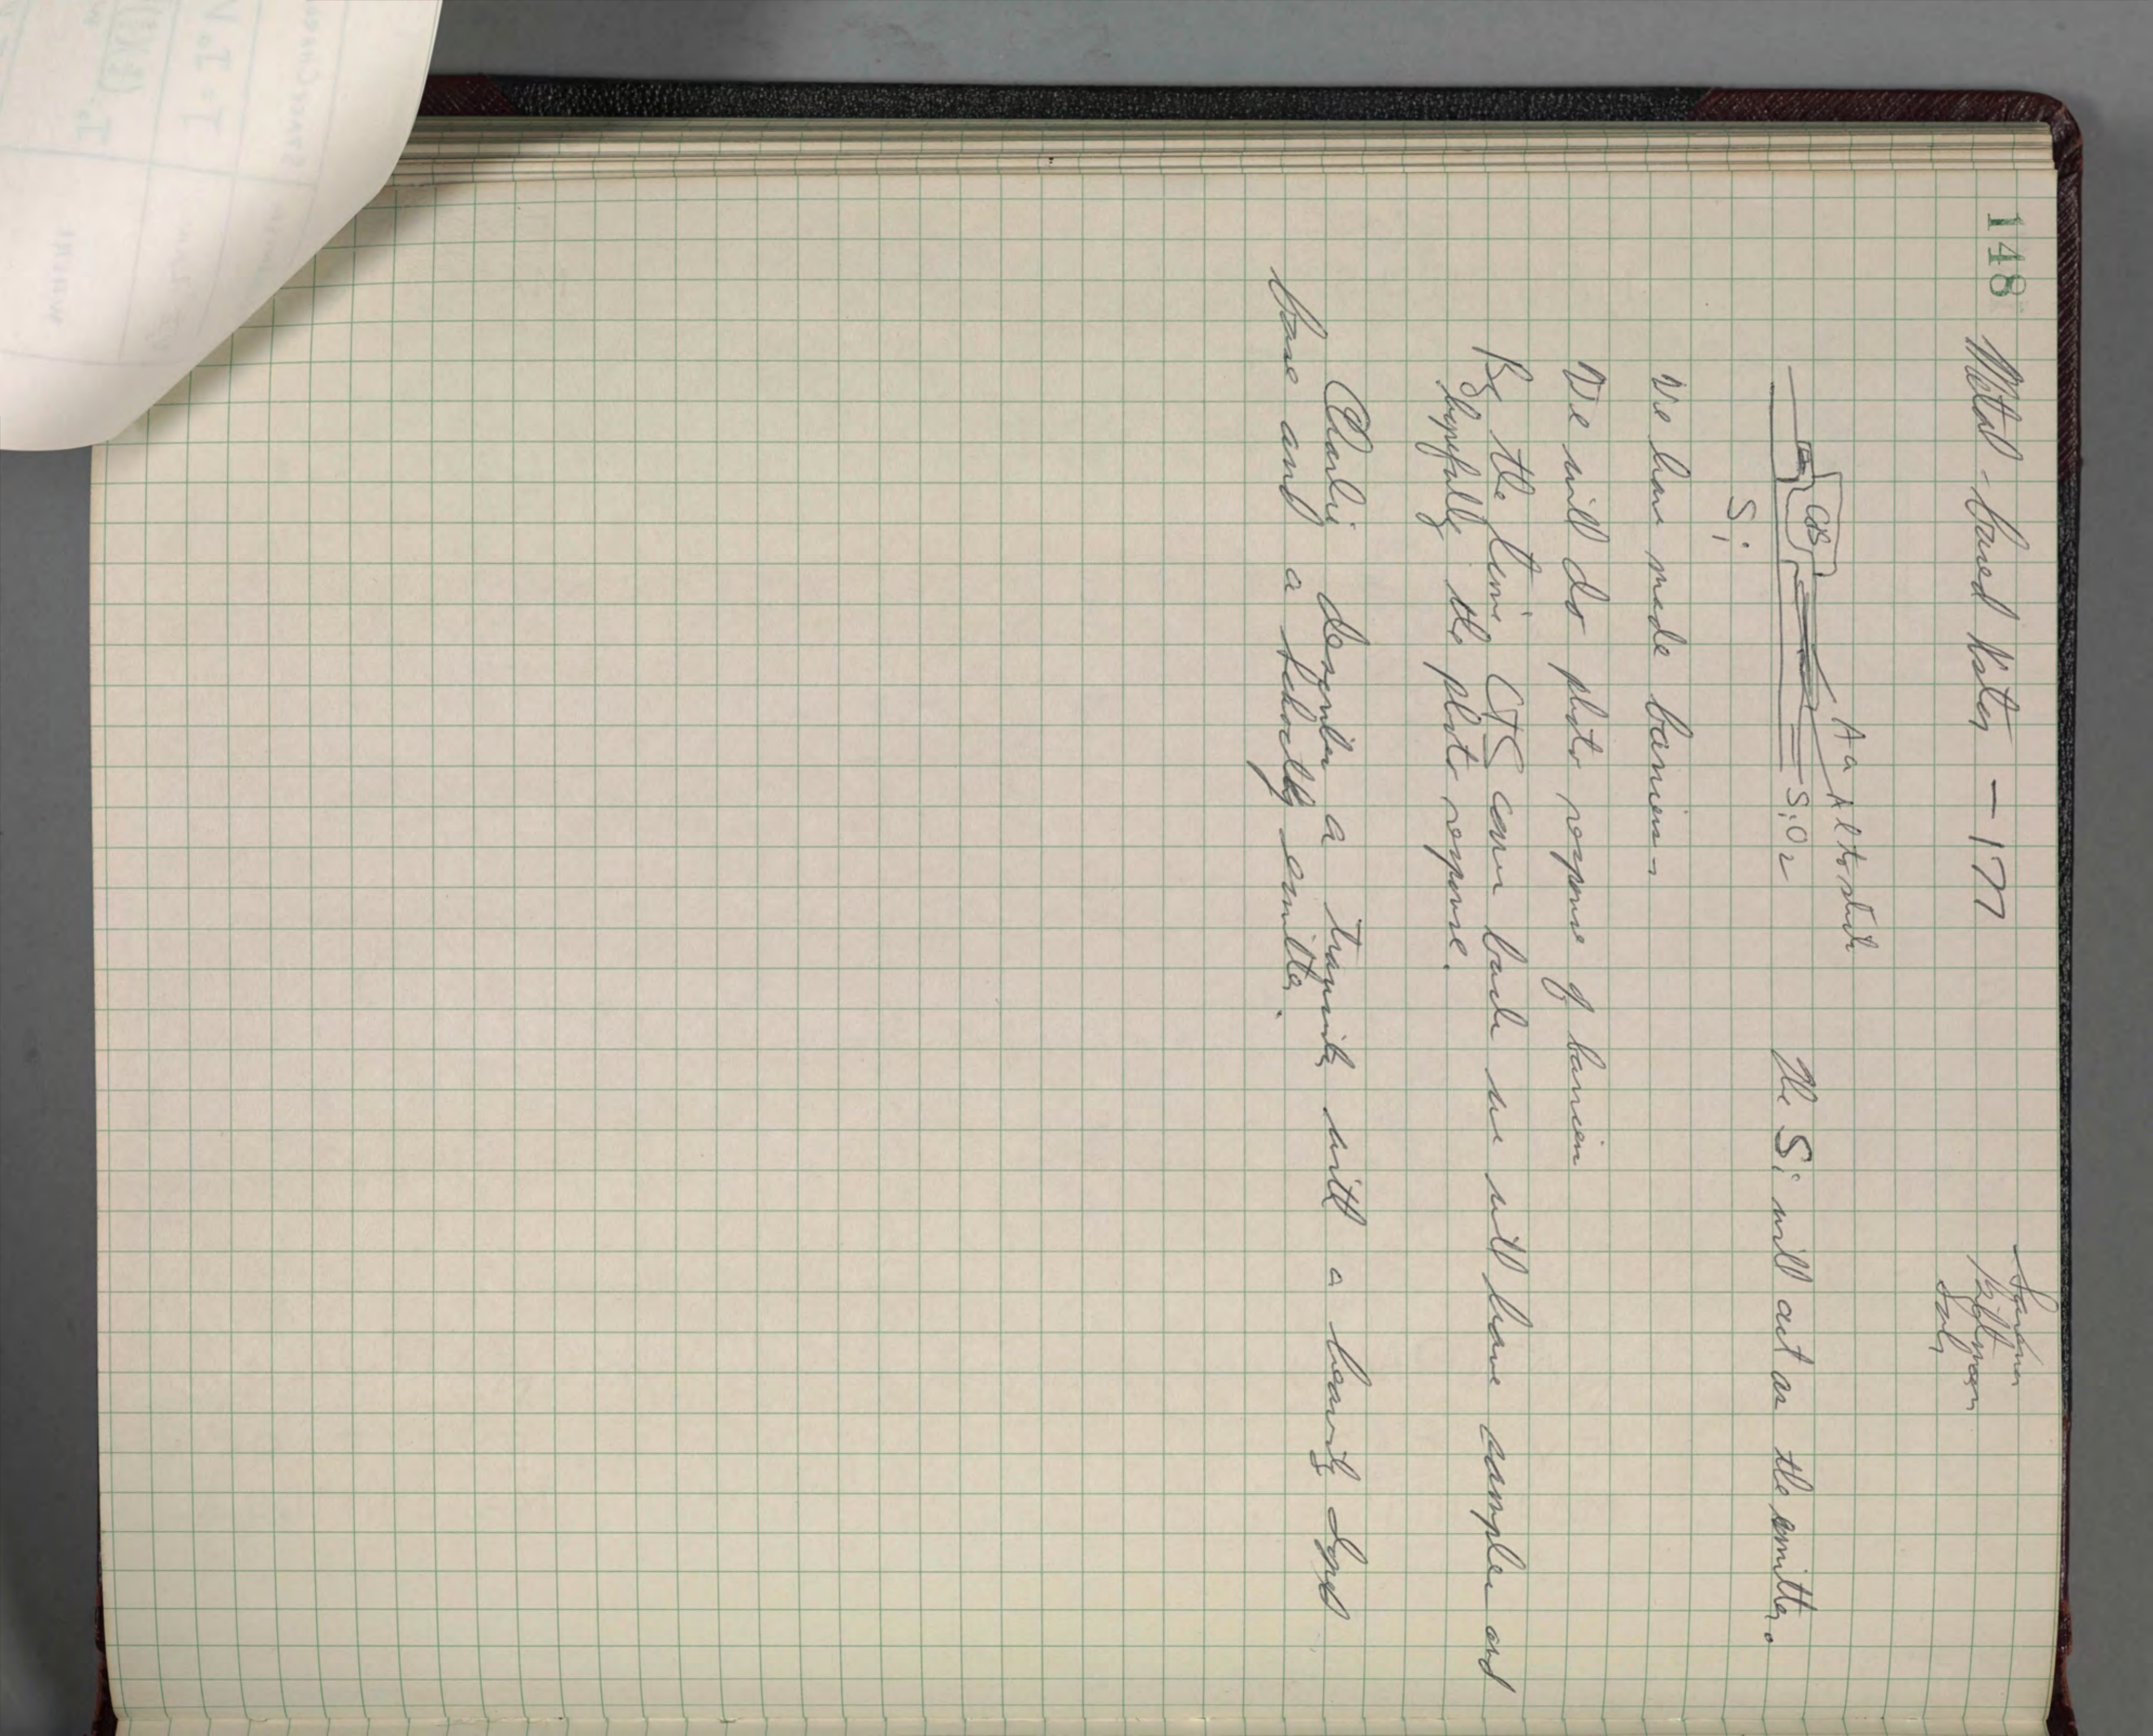 148
Metal-based
- 177
Au
Al to stick
CdS
SiO2
Si
The Si will act as the emitter.
We have made barriers
We will do photo response of barrier
By the time CTS comes back we will have samples and
hopefully the photo response.
Charlie describes a transistor with a heavily doped
base and a schottky emitter.
WHERE